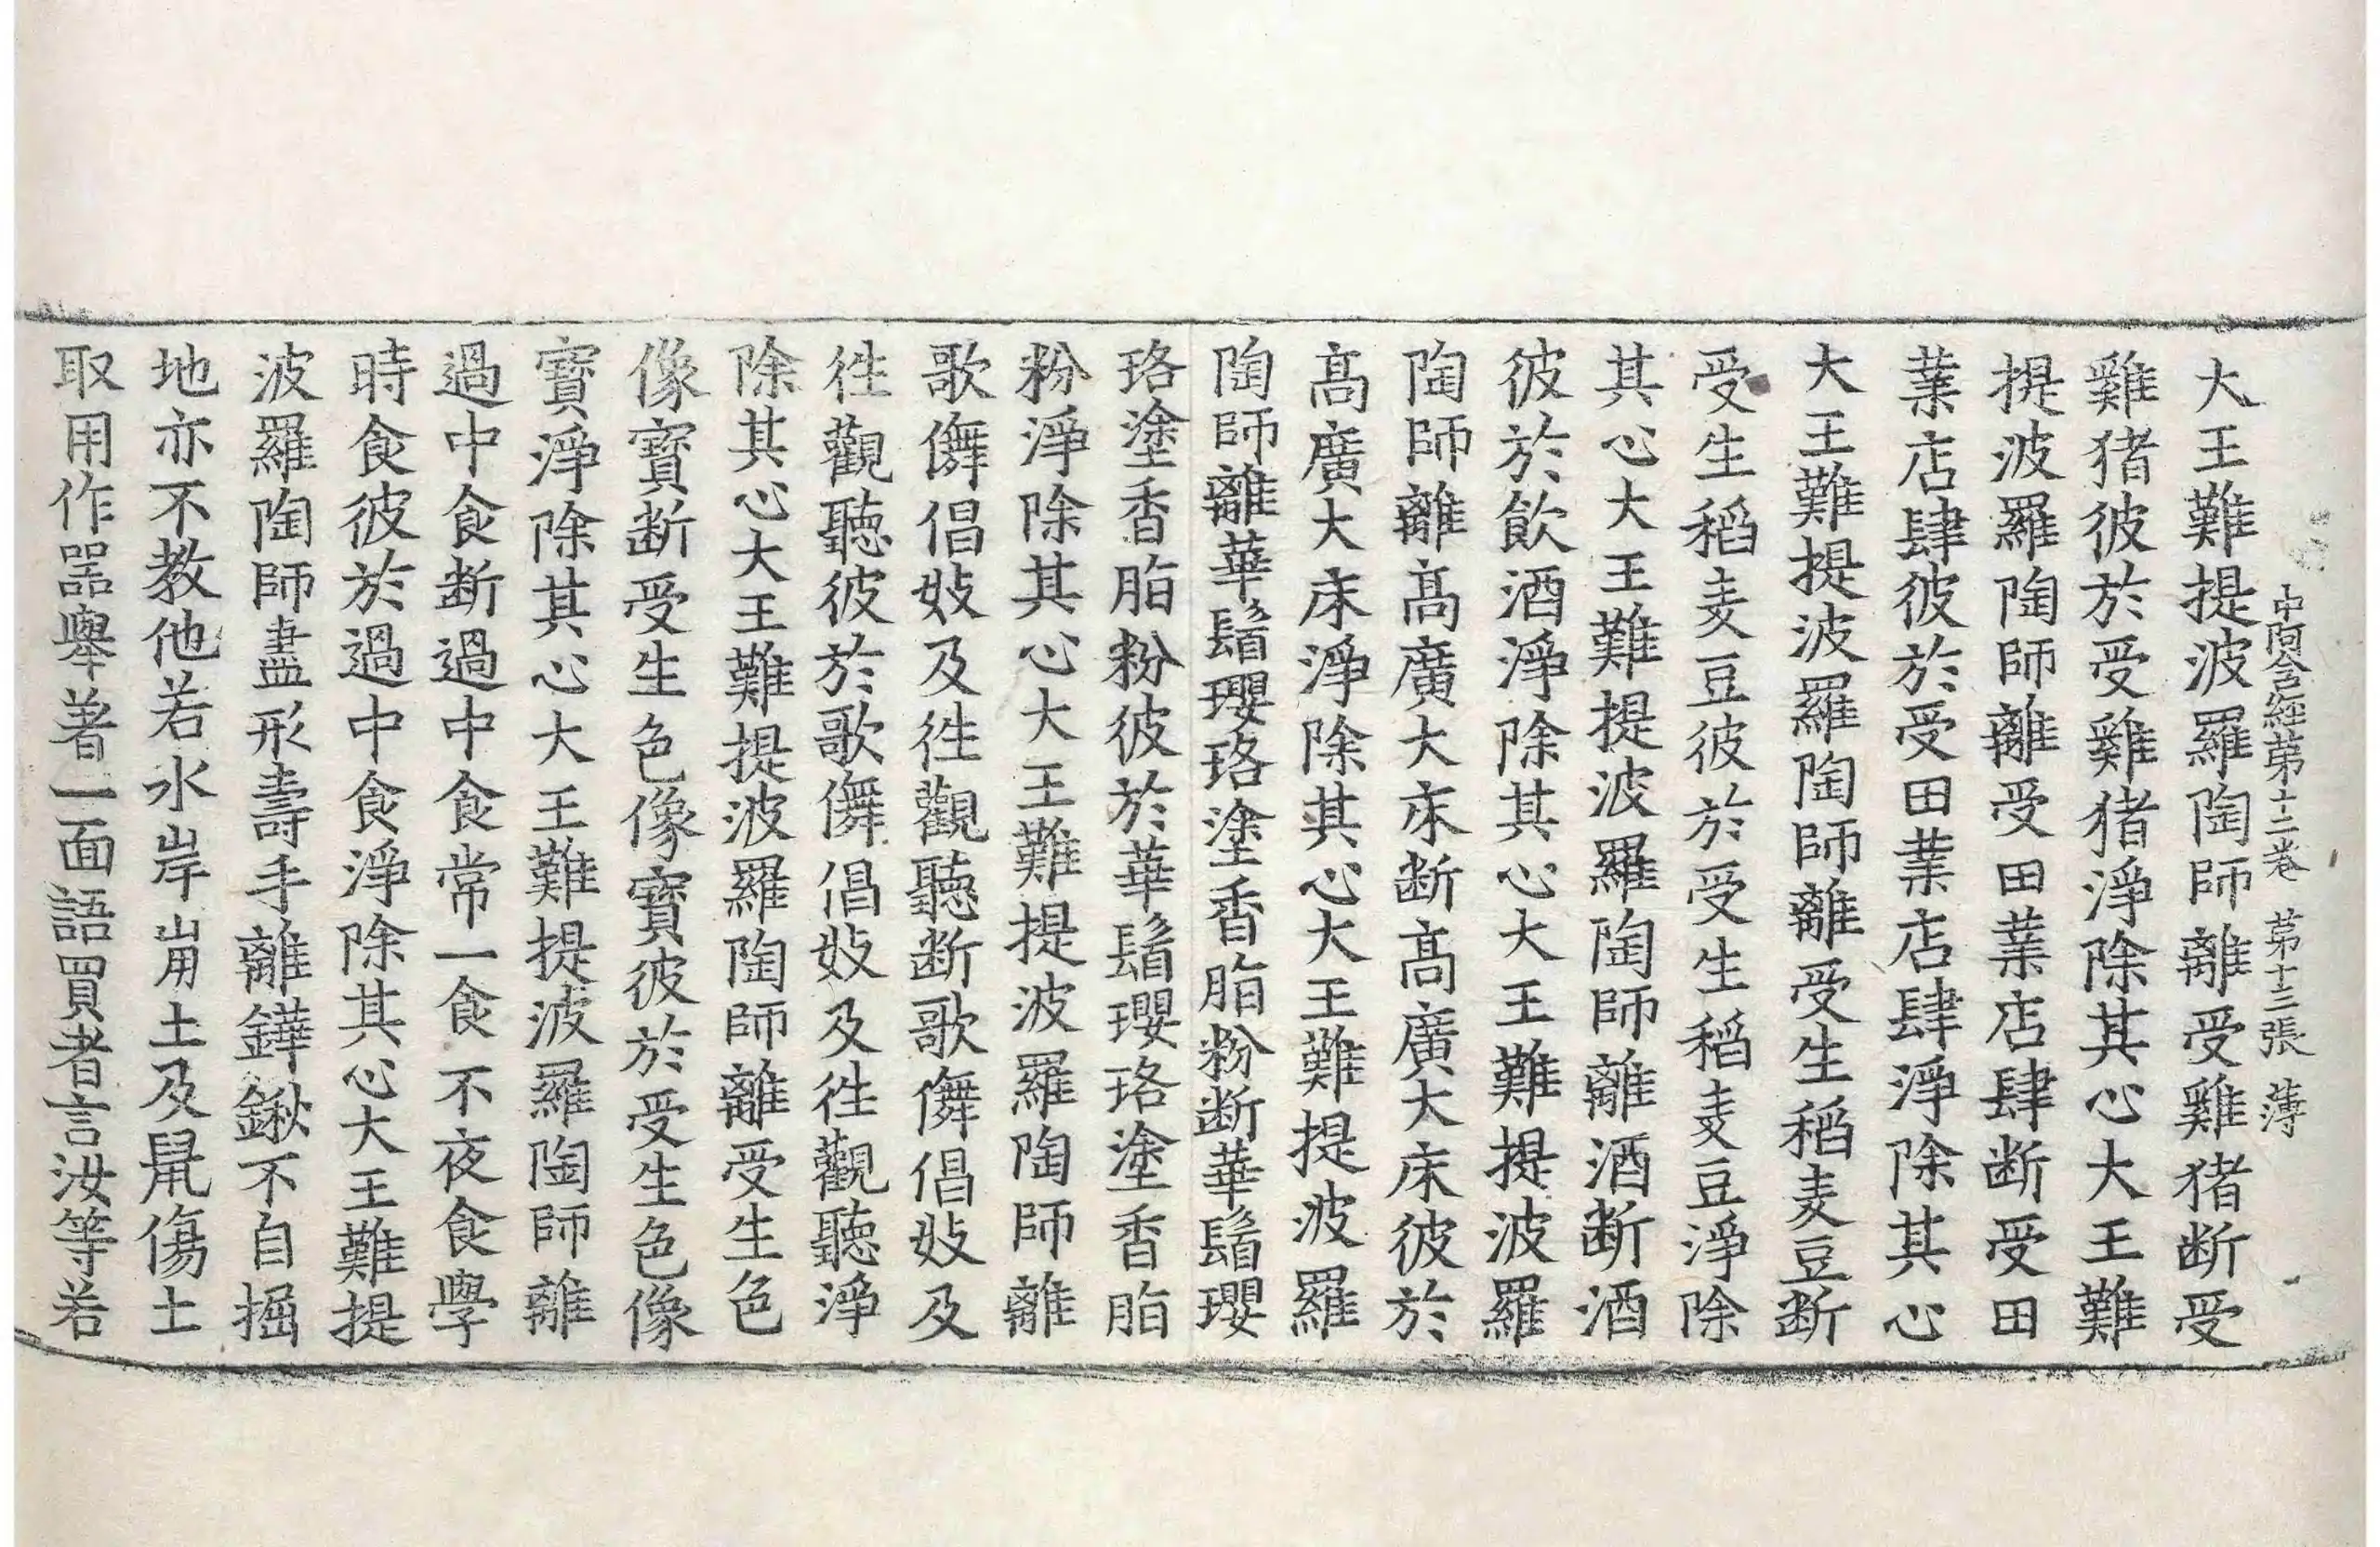 中阿含經第十二卷　第十三張　薄
大王難提波羅陶師離受雞猪断受
雞猪彼於受雞猪淨除其心大王難
提波羅陶師離受田業店肆断受田
業店肆彼於受田業店肆淨除其心
大王難提波羅陶師離受生稻麦豆断
受生稻麦豆彼於受生稻麦豆淨除
其心大王難提波羅陶師離酒断酒
彼於飲酒淨除其心大王難提波羅
陶師離髙廣大床断髙廣大床彼於
髙廣大床淨除其心大王難提波羅
陶師離華鬘瓔珞塗香脂粉断華鬘瓔
珞塗香脂粉彼於華鬘瓔珞塗香脂
粉淨除其心大王難提波羅陶師離
歌儛倡妓及徃觀聽断歌儛倡妓及
徃觀聽彼於歌儛倡妓及徃觀聽淨
除其心大王難提波羅陶師離受生色
像寶断受生色像寶彼於受生色像
寶淨除其心大王難提波羅陶師離
過中食断過中食常一食不夜食學
時食彼於過中食淨除其心大王難提
波羅陶師盡形壽手離鏵鍬不自掘
地亦不教他若水岸崩土及鼠傷土
取用作器舉著一面語買者言汝等若